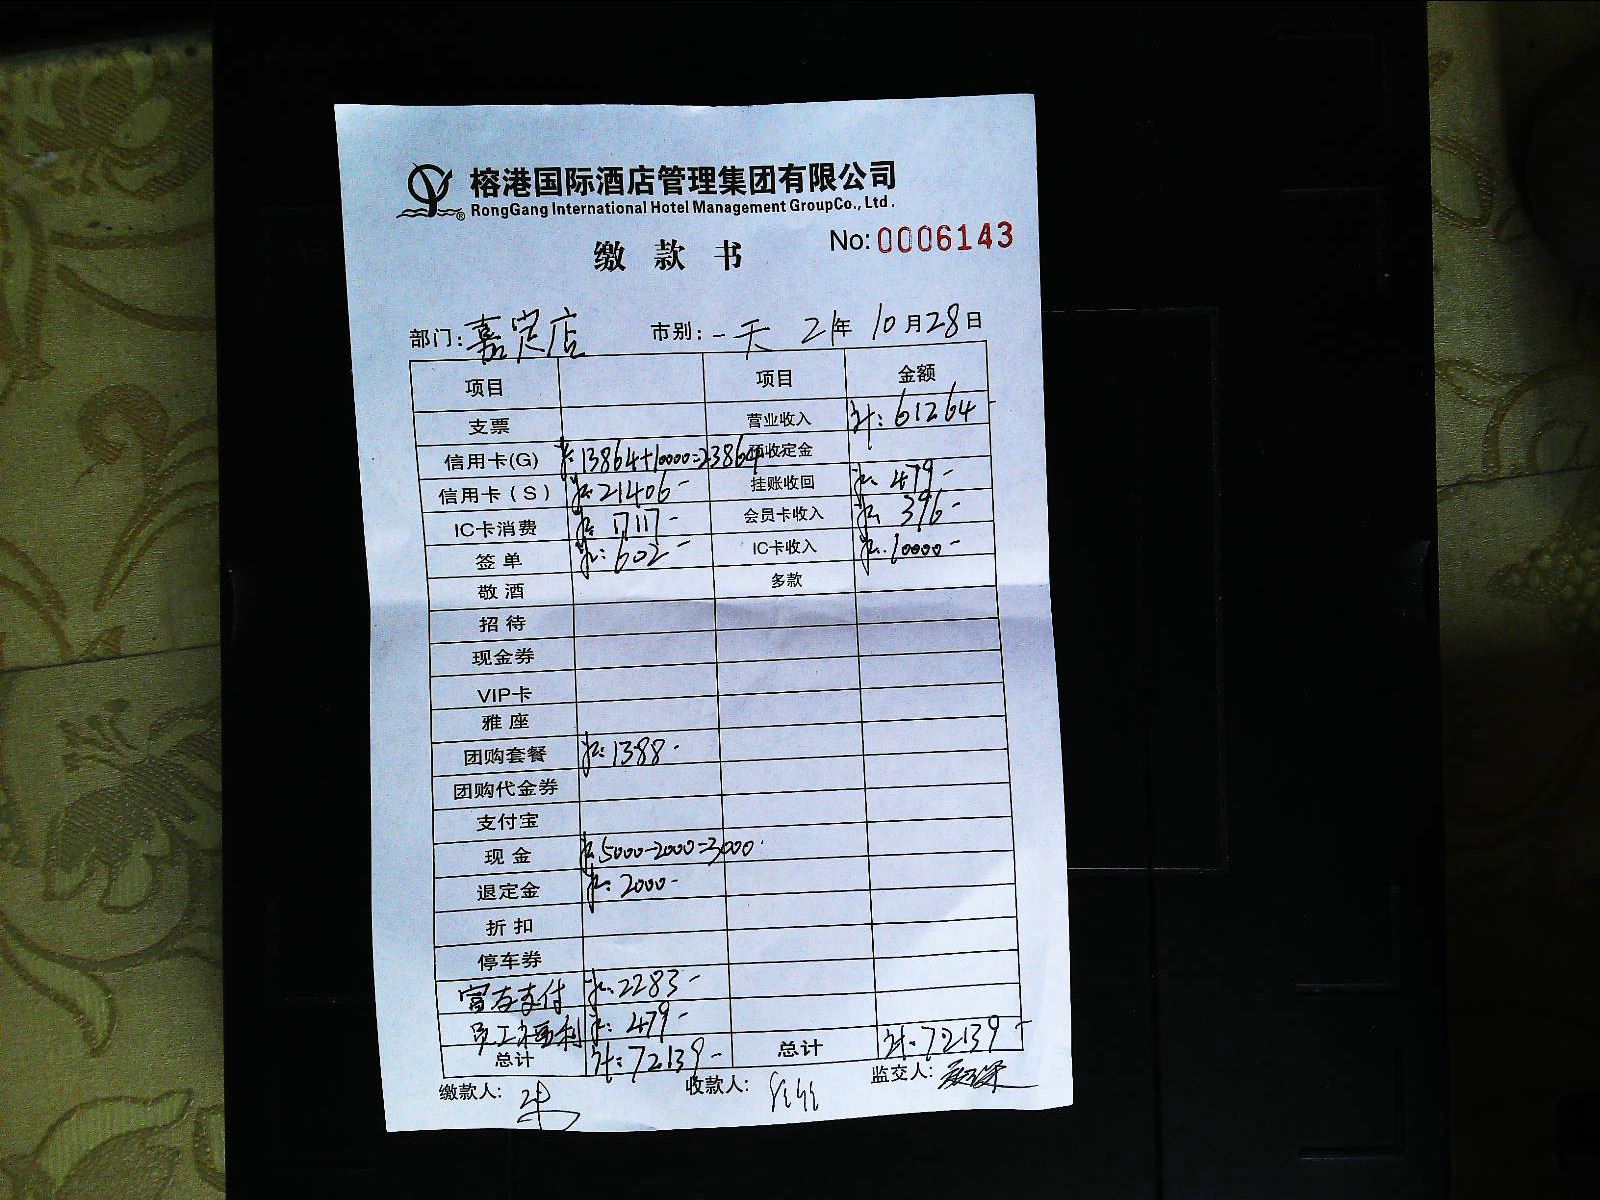 榕港国际酒店管理集团有限公司
RongGang International Hotel Management GroupCo., Ltd.
缴 款 书
No: 0006143
部门: 嘉定店 市别: 一天 21年 10月28日
项目 项目 金额
支票 营业收入 计: 61264-
信用卡(G) 13864+10000=23864 预收定金
信用卡(S) 21406- 挂账收回 479-
IC卡消费 17117- 会员卡收入 396-
签单 602- IC卡收入 10000-
敬酒 多款
招待
现金券
VIP卡
雅座
团购套餐 1388-
团购代金券
支付宝
现金 5000-2000=3000
退定金 2000-
折扣
停车券
富友支付 2283-
员工福利 479-
总计 计: 72139- 总计 计: 72139-
缴款人: 收款人: 监交人: